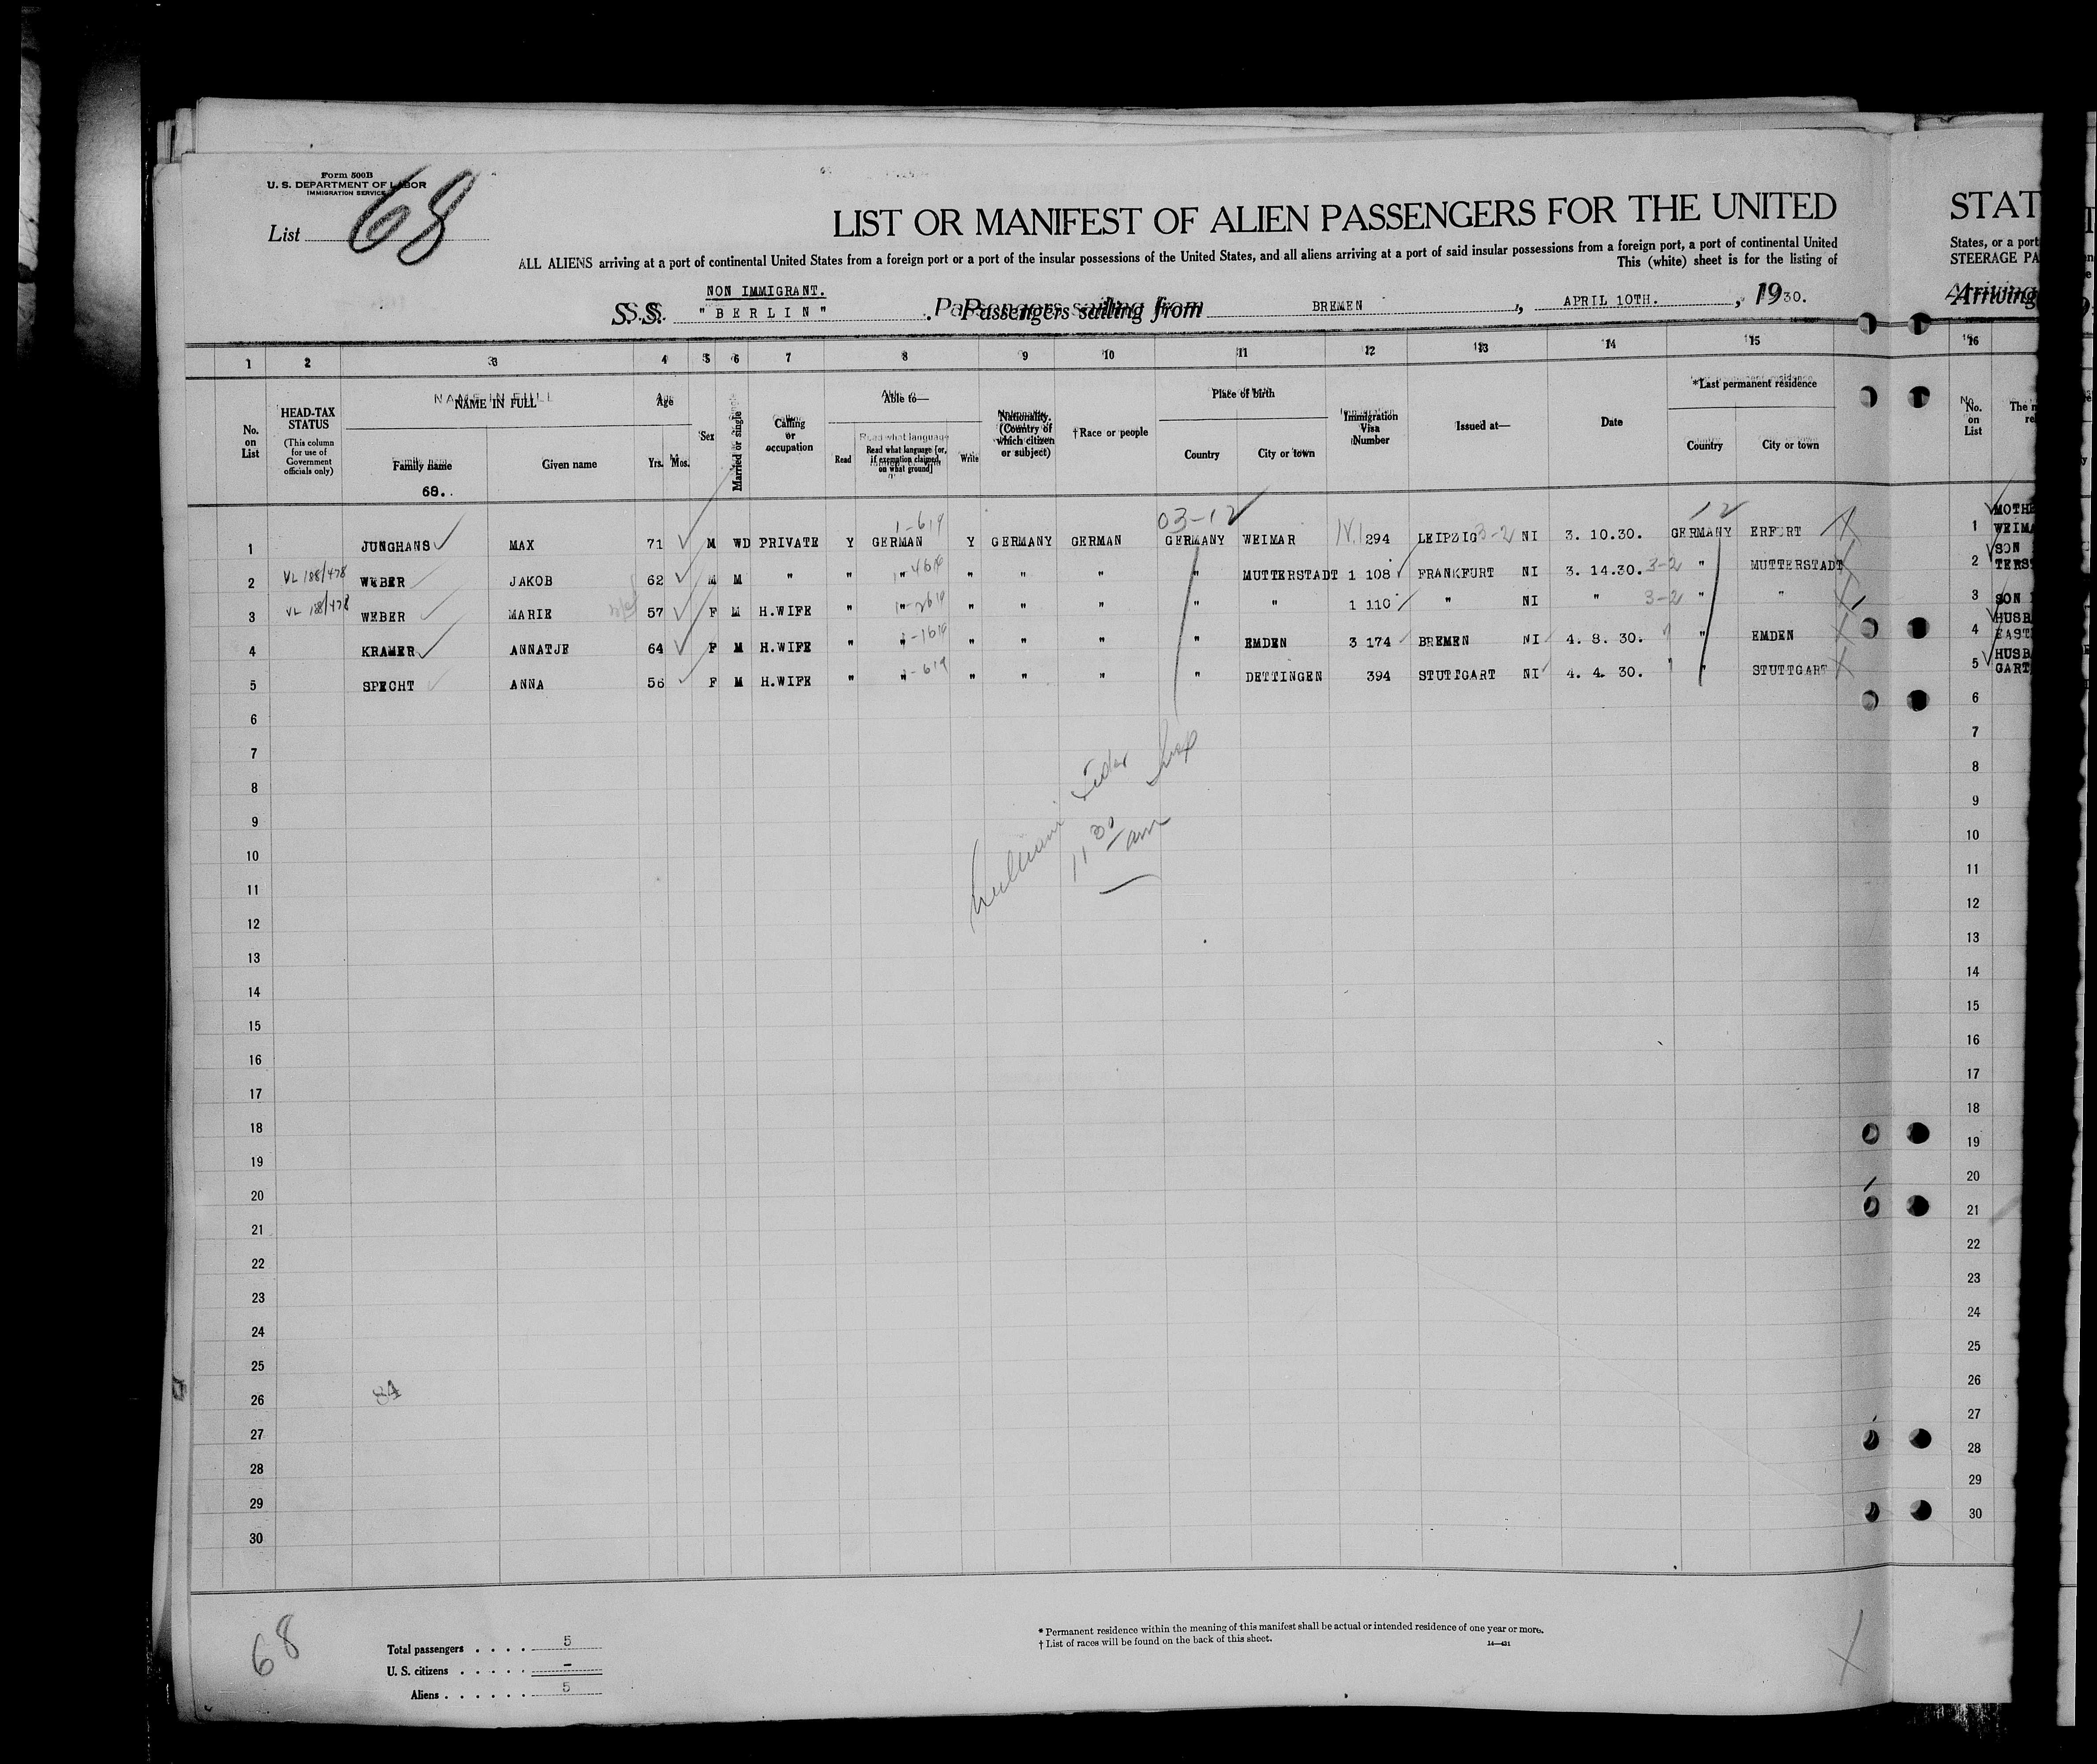 Form 500B
U. S. DEPARTMENT OF LABOR
IMMIGRATION SERVICE
List 68
LIST OR MANIFEST OF ALIEN PASSENGERS FOR THE UNITED
STAT
ALL ALIENS arriving at a port of continental United States from a foreign port or a port of the insular possessions of the United States, and all aliens arriving at a port of said insular possessions from a foreign port, a port of continental United
States, or a port
This (white) sheet is for the listing of
STEERAGE PA
NON IMMIGRANT.
S. S. " B E R L I N " . Passengers sailing from BREMEN , APRIL 10TH. , 1930.
Arriving
1 2 3 4 5 6 7 8 9 10 11 12 13 14 15 16
No. on List
HEAD-TAX STATUS
(This column for use of Government officials only)
NAME IN FULL
Family name
Given name
Age
Yrs. Mos.
Sex
Married or single
Calling or occupation
Able to—
Read
Read what language [or, if exemption claimed, on what ground]
Write
Nationality. (Country of which citizen or subject)
†Race or people
Place of birth
Country
City or town
Immigration Visa Number
Issued at—
Date
*Last permanent residence
Country
City or town
No. on List
68.
03-12 12
1-619
1 JUNGHANS MAX 71 M WD PRIVATE Y GERMAN Y GERMANY GERMAN GERMANY WEIMAR 294 LEIPZIG 3-2 NI 3. 10.30. GERMANY ERFURT 1 MOTH WEIMA
2 VL 188/478 WEBER JAKOB 62 M M " " " " " " " MUTTERSTADT 1 108 FRANKFURT NI 3. 14.30. 3-2 " MUTTERSTADT 2 SON TERS
3 VL 188/478 WEBER MARIE 57 F M H.WIFE " " " " " " " 1 110 " NI " 3-2 " " 3 SON
4 KRAMER ANNATJE 64 F M H.WIFE " " " " " " EMDEN 3 174 BREMEN NI 4. 8. 30. " EMDEN 4 HUSB EAST
5 SPECHT ANNA 56 F M H.WIFE " " " " " " DETTINGEN 394 STUTTGART NI 4. 4. 30. " STUTTGART 5 HUSB GART
6 6
7 7
8 8
9 9
10 10
11 30 am
11 11
12 12
13 13
14 14
15 15
16 16
17 17
18 18
19 19
20 20
21 21
22 22
23 23
24 24
25 25
26 84 26
27 27
28 28
29 29
30 30
68
Total passengers . . . . 5
U. S. citizens . . . . . . –
Aliens . . . . . . 5
* Permanent residence within the meaning of this manifest shall be actual or intended residence of one year or more.
† List of races will be found on the back of this sheet.
14—421